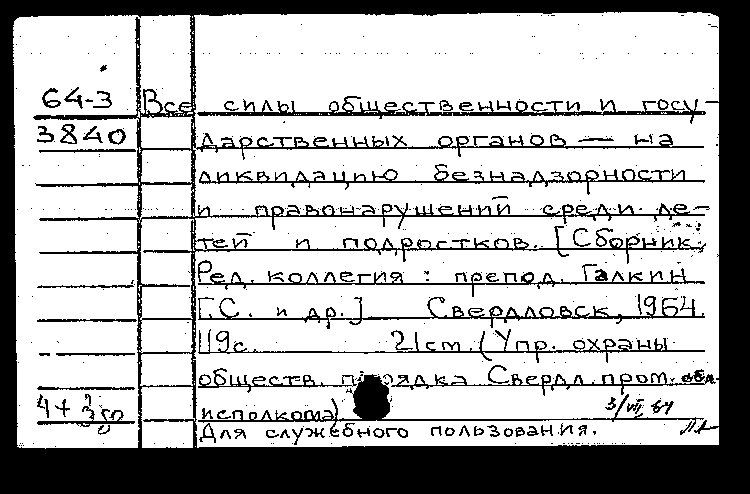 64-3 Все силы общественности и госу-
3840 дарственных органов — на
ликвидацию безнадзорности
и правонарушений среди де-
тей и подростков. [Сборник.
Ред. коллегия: препод. Галкин
Г.С. и др.] Свердловск, 1964.
119с. 21см. (Упр. охраны
обществ. порядка Свердл. пром. обл-
исполкома) 3/VII 64
Для служебного пользования.